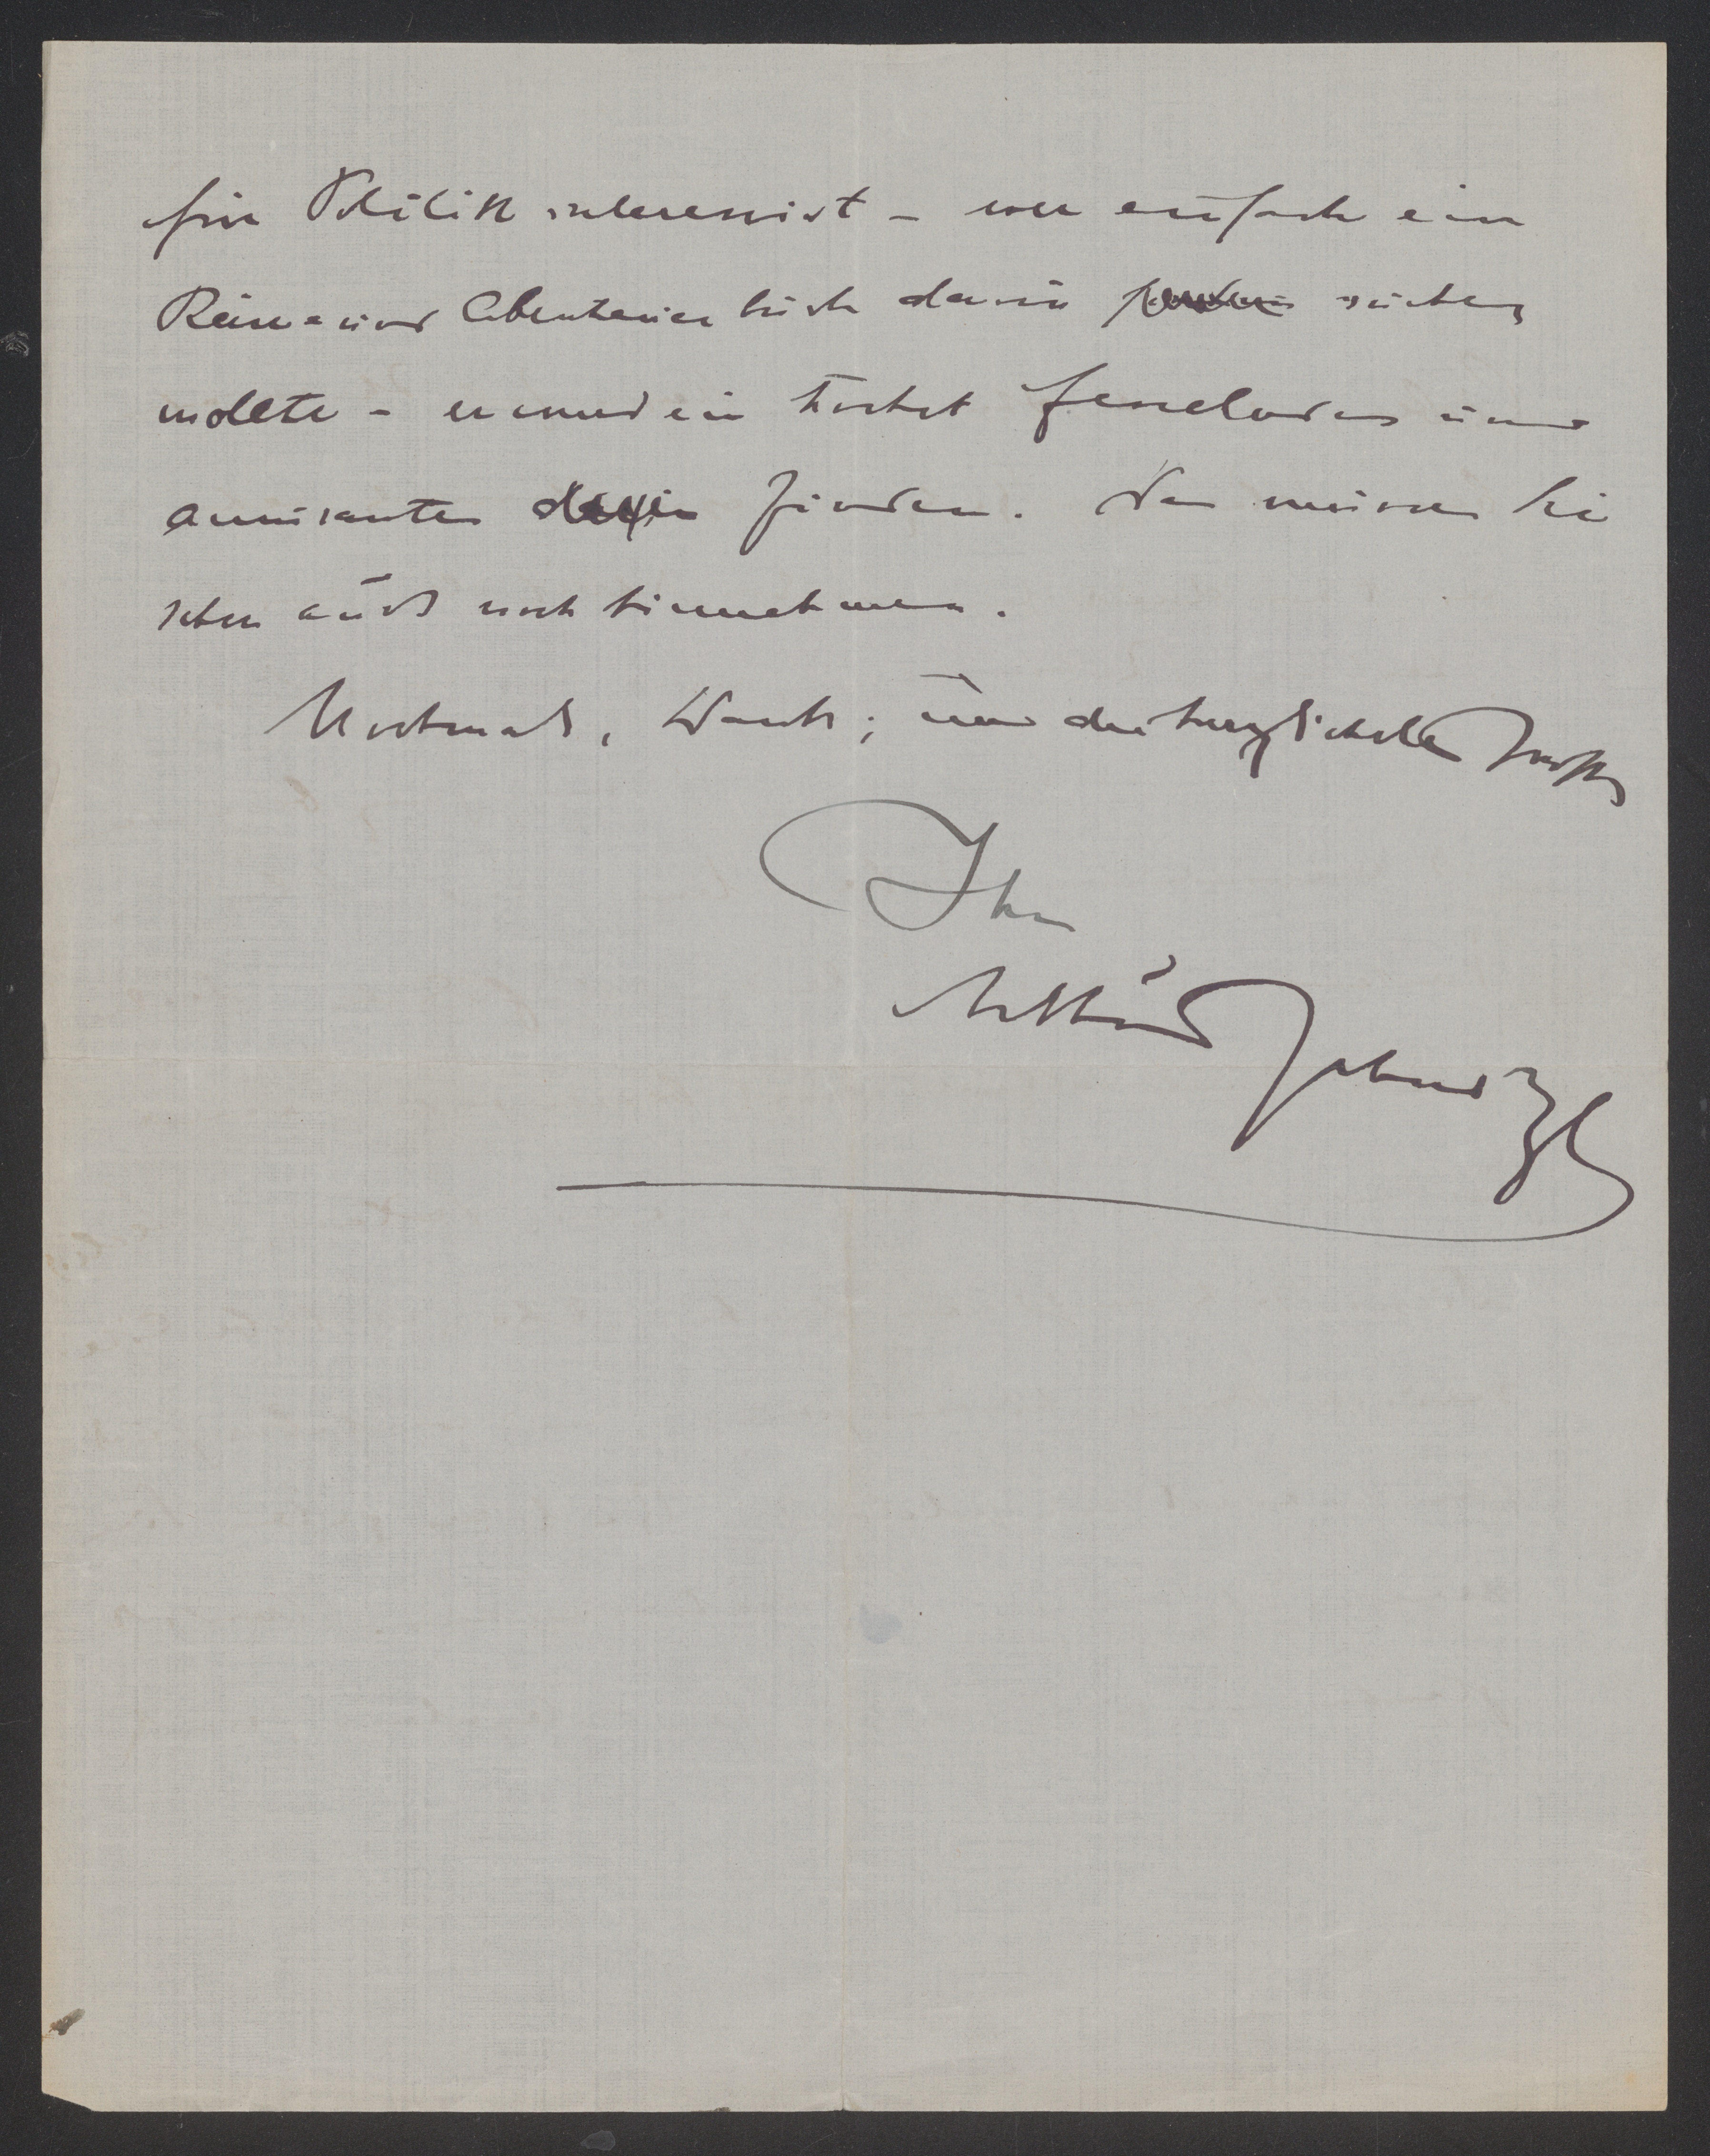 für Politik interessiert – wer einfach ein
Reise- und Abenteuerbuch darin suchen
wollte – er wird ein höchst fesselndes und
amüsantes darin finden. Das müssen Sie
schon auch noch hinnehmen.
Nochmals, Dank; und die herzlichsten Grüße
Ihr
Arthur